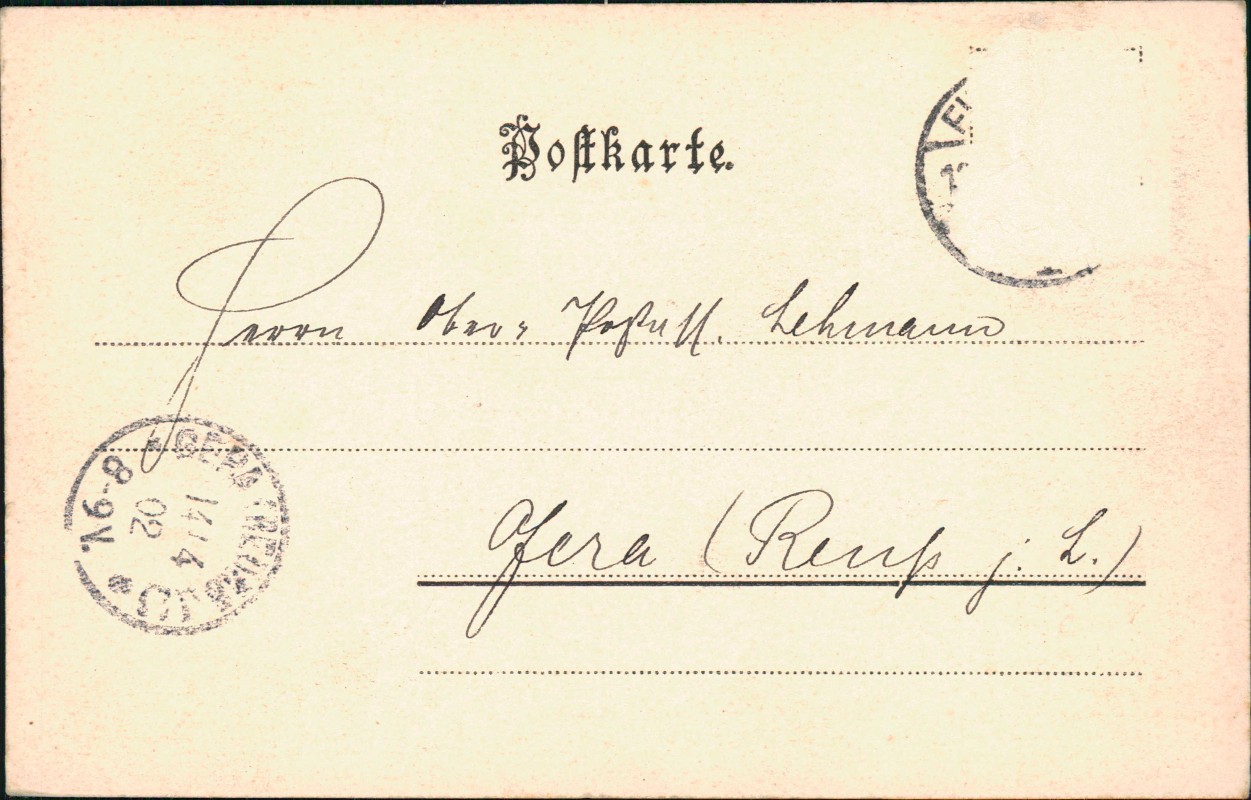 Postkarte.
Herrn Ober-Postass. Lehmann
Gera (Reuß j. L.)
GERA (REUSS)
14/4
02
8-9V.